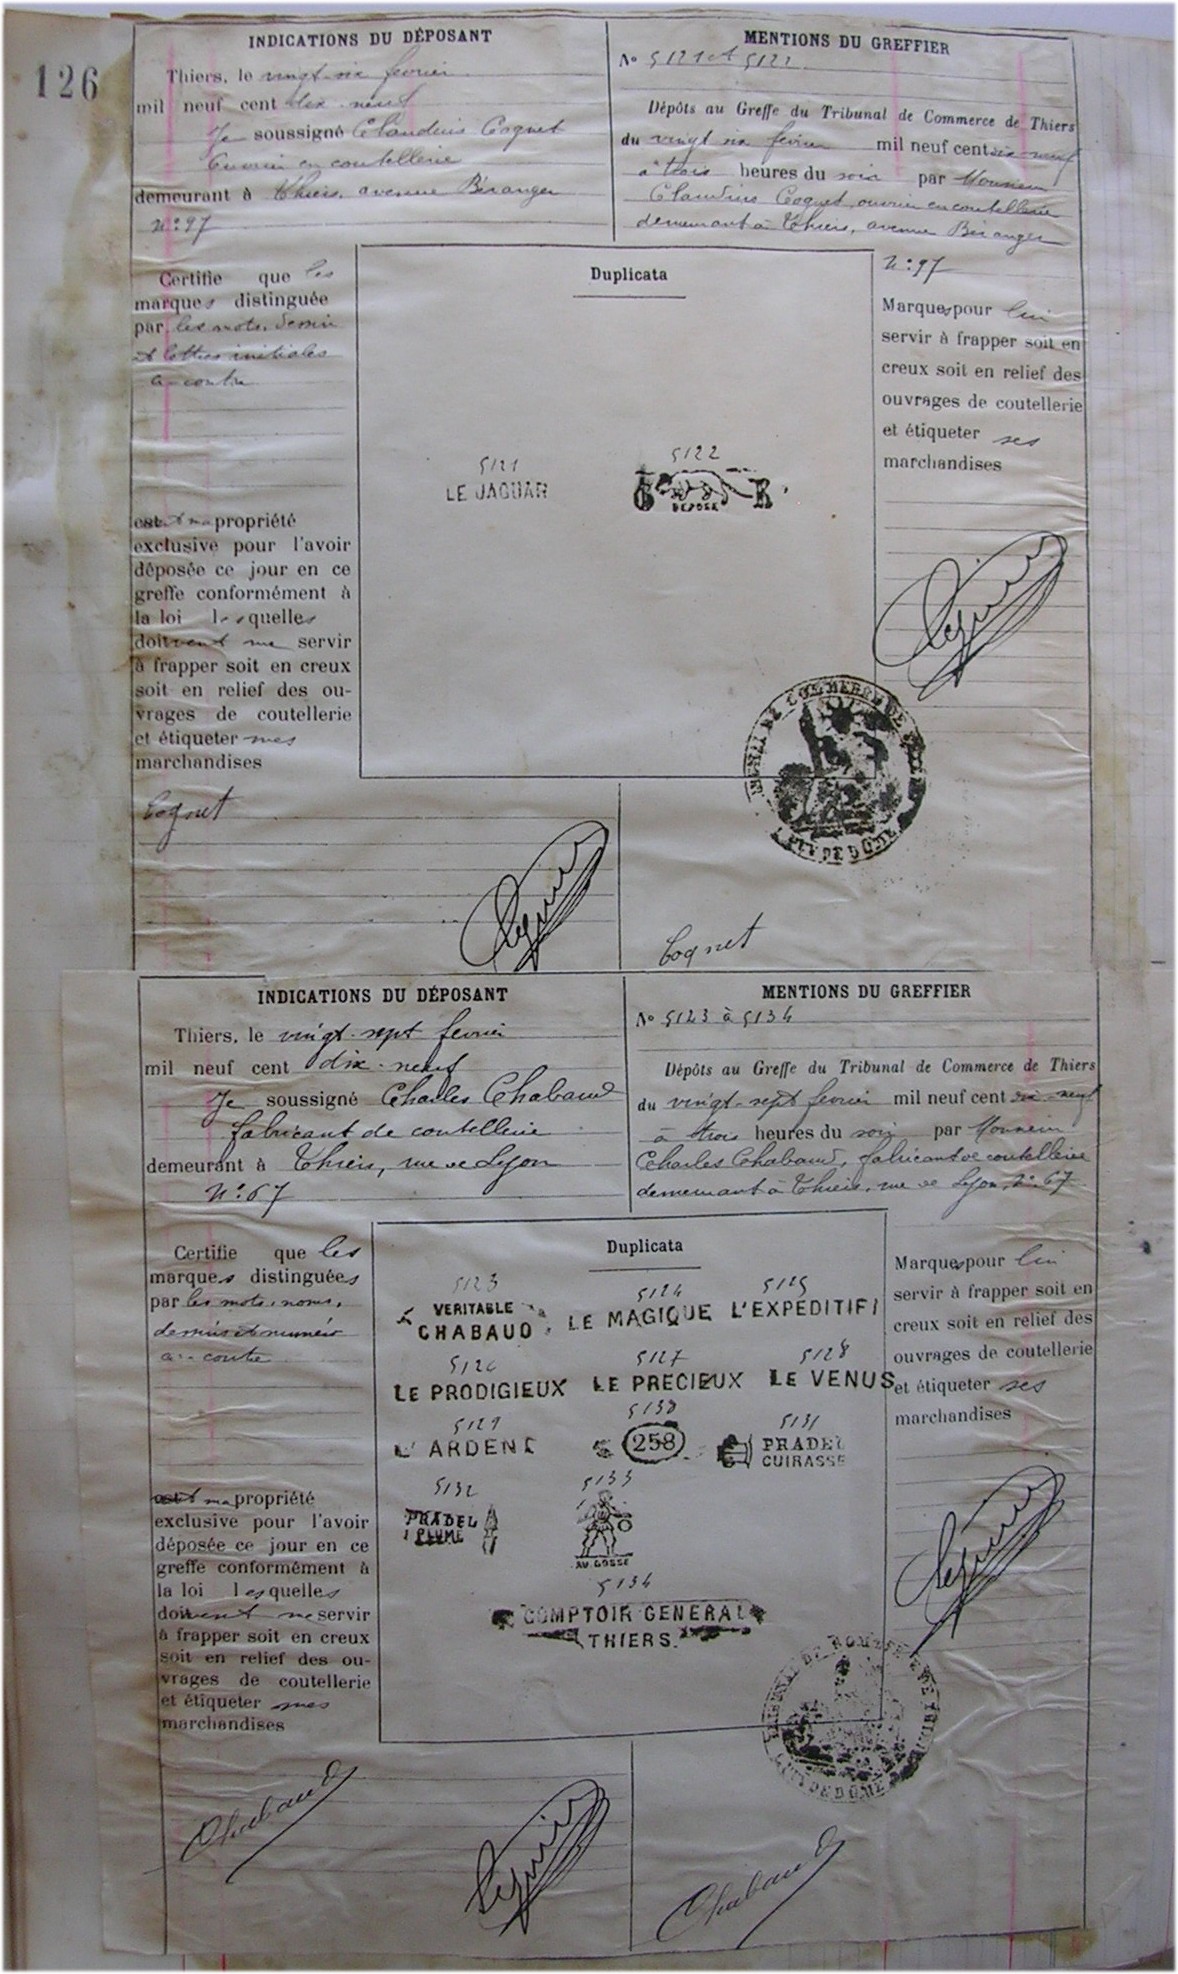 126
INDICATIONS DU DÉPOSANT
Thiers, le vingt-six fevrier
mil neuf cent dix-neuf
Je soussigné Claudius Cognet
Ouvrier en coutellerie
demeurant à Thiers, avenue Béranger
N° 97
MENTIONS DU GREFFIER
N° 5121 et 5122
Dépôts au Greffe du Tribunal de Commerce de Thiers
du vingt six fevrier mil neuf cent dix neuf
à trois heures du soir par Monsieur
Claudius Cognet, ouvrier en coutellerie
demeurant à Thiers, avenue Béranger
N° 97
Certifie que les
marques distinguée
par les mots, dessin
et lettres initiales
ci-contre
est ma propriété
exclusive pour l'avoir
déposée ce jour en ce
greffe conformément à
la loi lesquelles
doivent me servir
à frapper soit en creux
soit en relief des ou-
vrages de coutellerie
et étiqueter mes
marchandises
Cognet
Duplicata
5121
LE JAGUAR
5122
DEPOSE
Marques pour lui
servir à frapper soit en
creux soit en relief des
ouvrages de coutellerie
et étiqueter ses
marchandises
PUY DE DÔME
Cognet
INDICATIONS DU DÉPOSANT
Thiers, le vingt-sept fevrier
mil neuf cent dix-neuf
Je soussigné Charles Chabaud
fabricant de coutellerie
demeurant à Thiers, rue de Lyon
N° 67
MENTIONS DU GREFFIER
N° 5123 à 5134
Dépôts au Greffe du Tribunal de Commerce de Thiers
du vingt-sept fevrier mil neuf cent dix-neuf
à trois heures du soir par Monsieur
Charles Chabaud, fabricant de coutellerie
demeurant à Thiers, rue de Lyon, N° 67
Certifie que les
marques distinguées
par les mots, noms,
dessins et numéro
ci-contre
est ma propriété
exclusive pour l'avoir
déposée ce jour en ce
greffe conformément à
la loi lesquelles
doivent me servir
à frapper soit en creux
soit en relief des ou-
vrages de coutellerie
et étiqueter mes
marchandises
Chabaud
Duplicata
5123
VERITABLE
CHABAUD
5124
LE MAGIQUE
5125
L'EXPEDITIF
5126
LE PRODIGIEUX
5127
LE PRECIEUX
5128
LE VENUS
5129
L'ARDENT
5130
258
5131
PRADEL
CUIRASSE
5132
PRADEL
PLUME
5133
AU GOSSE
5134
COMPTOIR GENERAL
THIERS.
Marques pour lui
servir à frapper soit en
creux soit en relief des
ouvrages de coutellerie
et étiqueter ses
marchandises
PUY DE DÔME
Chabaud